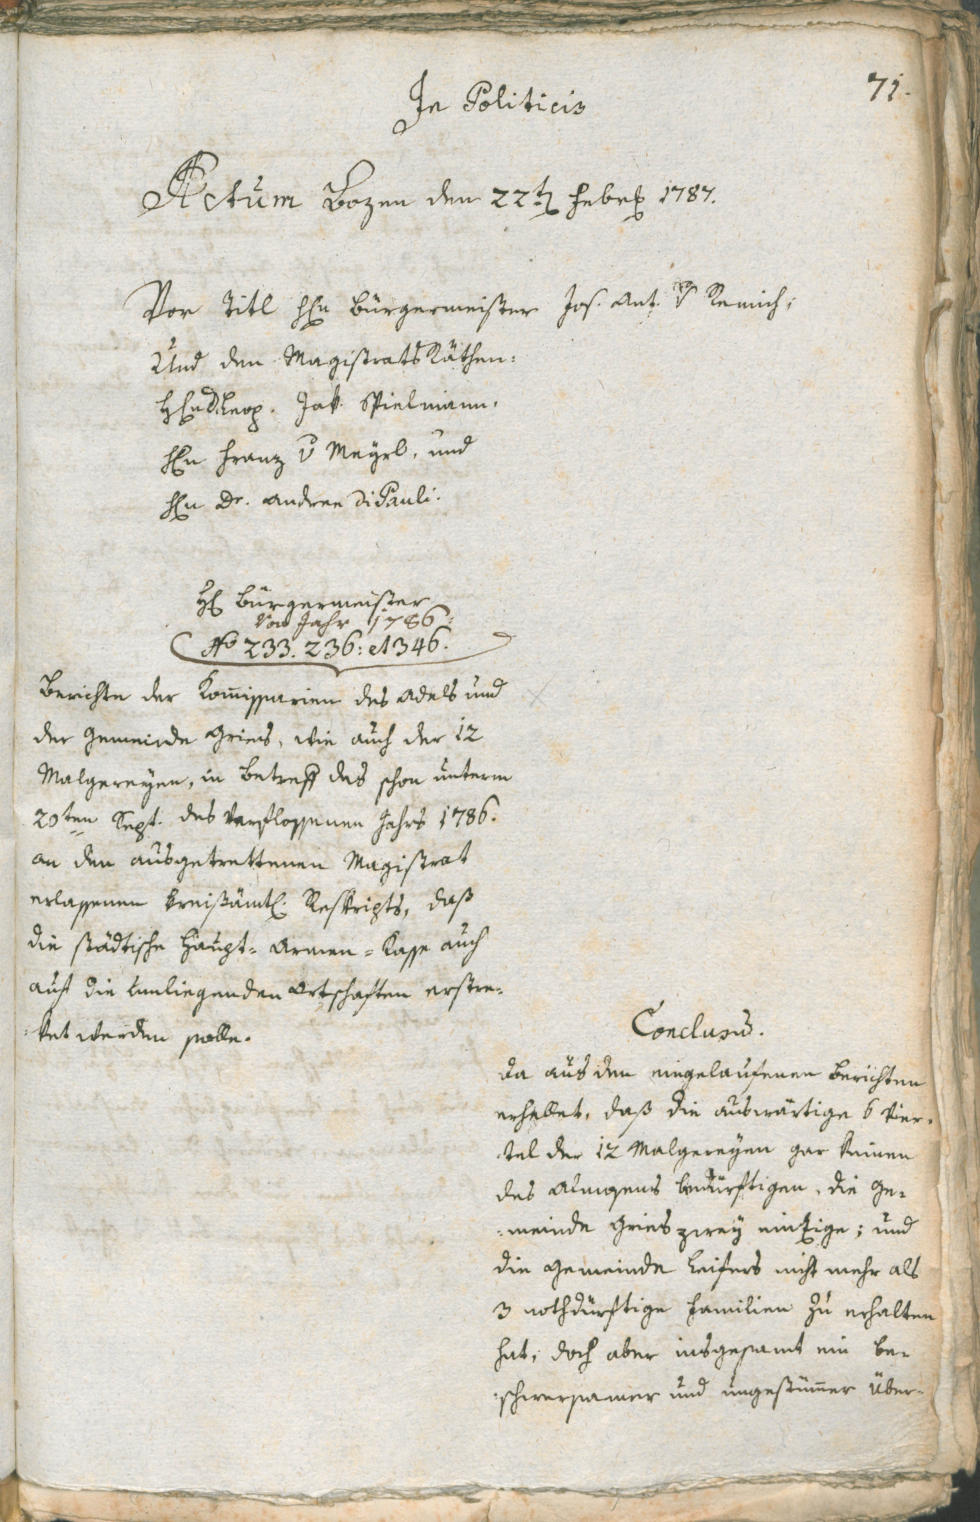 71.
In Politicis
Actum Bozen den 22t Febr 1787.
Vor Titl Hn Bürgermeister Jos. Ant. v Remich;
Und den Magistrats Räthen:
Hn Leop. Jak. Spielmann.
Hn Franz v Mayrl, und
Hn Dr. Andree Di Pauli.
H Bürgermeister
Von Jahr 1786:
No 233. 236: et 346.
Berichte der Kom̅issarien des Adels und
der Gemeinde Gries, wie auch der 12
Malgereyen, in Betreff des schon unterm
20ten Sept. des verflossenen Jahrs 1786.
an den ausgetrettenen Magistrat
erlassenen kreißämtl. Reskripts, daß
die städtische Haupt-Armen-Kasse auch
auf die umliegenden Ortschaften erstre-
ket werden solle.
Conclusum.
Da aus den eingelaufenen Berichten
erhellet, daß die auswärtige 6 Vier-
tel der 12 Malgereyen gar keinen
des Almosens bedürftigen, die Ge-
meinde Gries zwey einzige; und
die Gemeinde Leifers nicht mehr als
3 nothdürftige Familien zu erhalten
hat, doch aber insgesamt ein be-
schwersamer und ungestüm̅er Über-